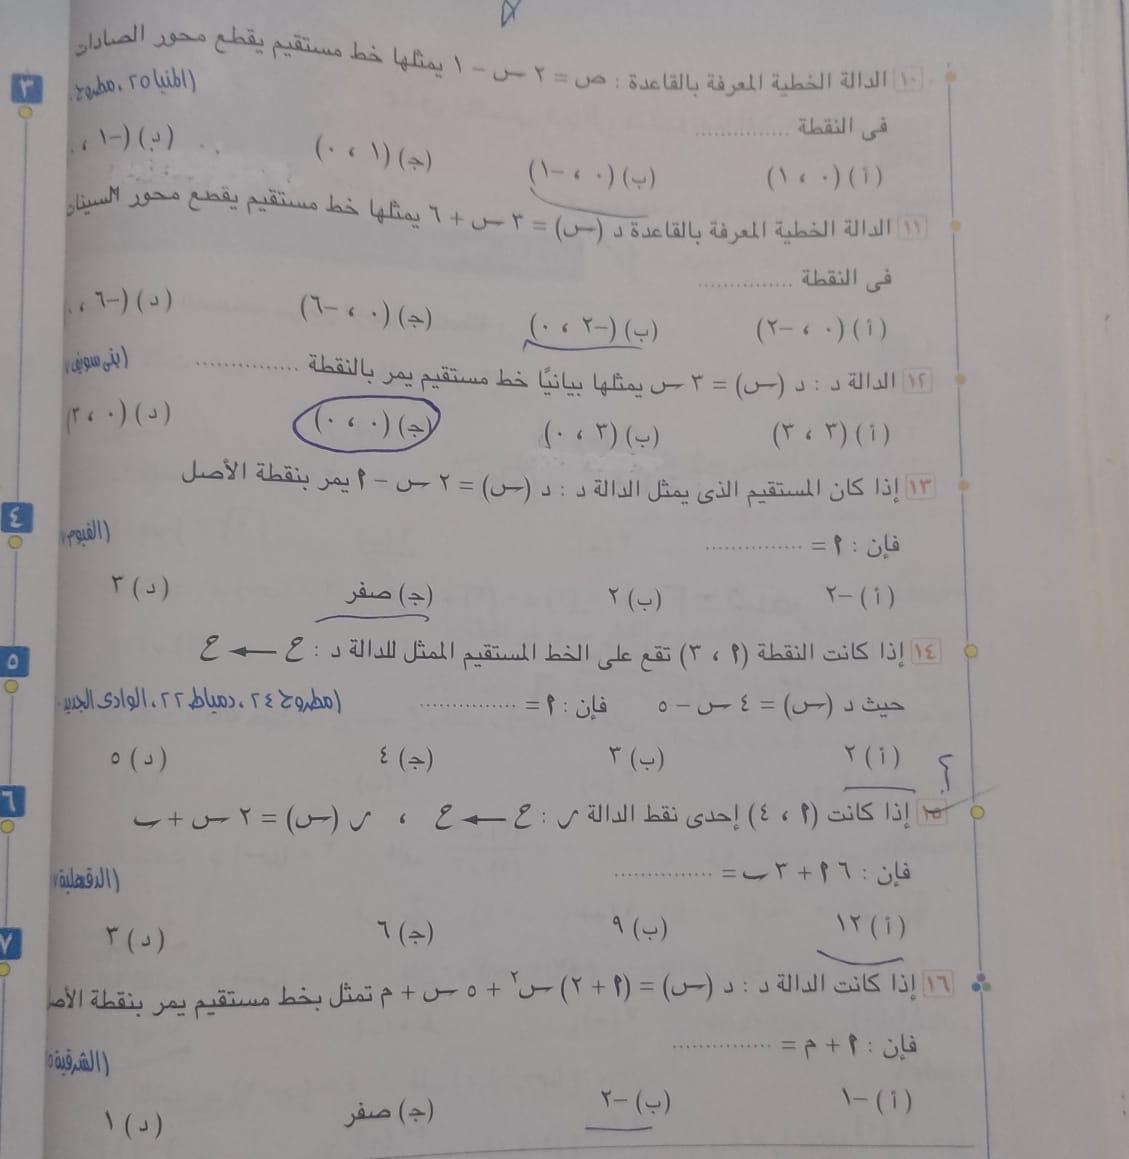 ١٠ الدالة الخطية المعرفة بالقاعدة : ص = ٢ س − ١ يمثلها خط مستقيم يقطع محور الصادات
فى النقطة ............... (المنيا ٢٥ ، مطروح
(أ) (٠ ، ١) (ب) (٠ ، −١) (ج) (١ ، ٠) (د) (−١ ،
١١ الدالة الخطية المعرفة بالقاعدة د (س) = ٣ س + ٦ يمثلها خط مستقيم يقطع محور السينات
فى النقطة ...............
(أ) (٠ ، −٢) (ب) (−٢ ، ٠) (ج) (٠ ، −٦) (د) (−٦ ،
١٢ الدالة د : د (س) = ٣ س يمثلها بيانيًا خط مستقيم يمر بالنقطة ............... (بنى سويف
(أ) (٣ ، ٣) (ب) (٣ ، ٠) (ج) (٠ ، ٠) (د) (٠ ، ٣)
١٣ إذا كان المستقيم الذى يمثل الدالة د : د (س) = ٢ س − ٢ يمر بنقطة الأصل
فإن : ٢ = ............... (الفيوم
(أ) −٢ (ب) ٢ (ج) صفر (د) ٣
١٤ إذا كانت النقطة (٢ ، ٣) تقع على الخط المستقيم الممثل للدالة د : ع ← ع
حيث د (س) = ٤ س − ٥ فإن : ٢ = ............... (مطروح ٢٤ ، دمياط ٢٢ ، الوادى الجديد
(أ) ٢ (ب) ٣ (ج) ٤ (د) ٥
؟
١٥ إذا كانت (٢ ، ٤) إحدى نقط الدالة ر : ع ← ع ، ر (س) = ٢ س + ب
فإن : ٦ ٢ + ٣ ب = ............... (الدقهلية
(أ) ١٢ (ب) ٩ (ج) ٦ (د) ٣
١٦ إذا كانت الدالة د : د (س) = (٢ + ٢) س² + ٥ س + م تمثل بخط مستقيم يمر بنقطة الأصل
فإن : ٢ + م = ............... (الشرقية
(أ) −١ (ب) −٢ (ج) صفر (د) ١
٣
٤
٥
٦
٧